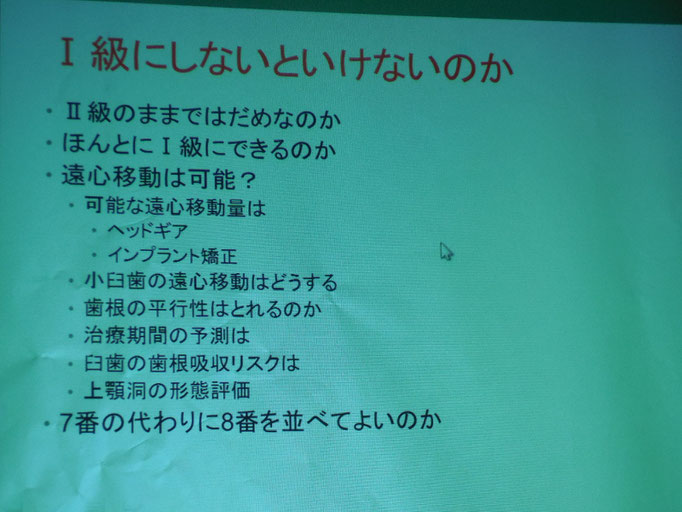 Ⅰ級にしないといけないのか
・Ⅱ級のままではだめなのか
・ほんとにⅠ級にできるのか
・遠心移動は可能？
・可能な遠心移動量は
・ヘッドギア
・インプラント矯正
・小臼歯の遠心移動はどうする
・歯根の平行性はとれるのか
・治療期間の予測は
・臼歯の歯根吸収リスクは
・上顎洞の形態評価
・7番の代わりに8番を並べてよいのか